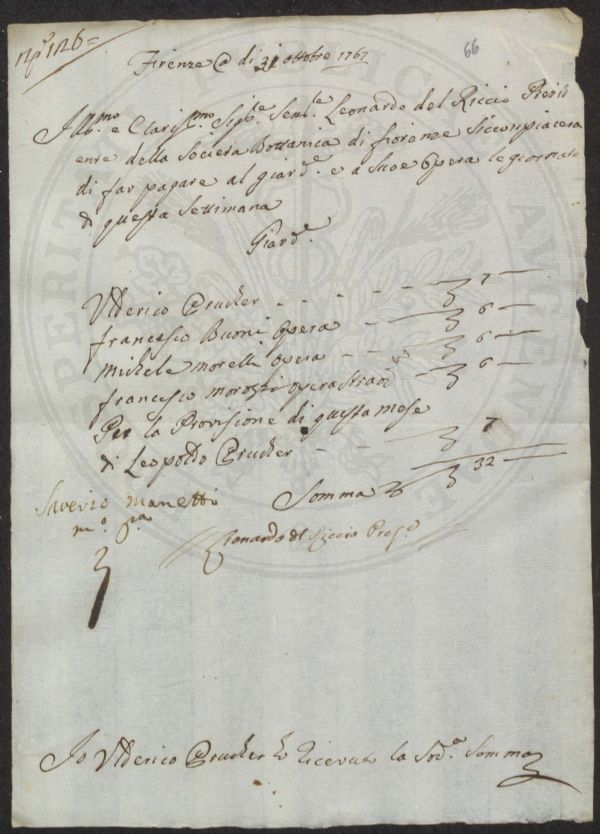 126=
66
Firenze @ di 31 ottobre 1767
Illmo e Clarissmo Sigre Senre Leonardo del Riccio Presid
ente della Società Bottanica di fiorenze Siccompiacera
di far pagare al giardre e a Suoe Opera le giornate
di questa Settimana
Giardre
Ulderico Prucker - - - - - 7 -
francesco Buoni Opera - - 6 -
Michele Morelli Opera - - 6 -
francesco morozzi opera Straordra - 6 -
Per la Provisione di questa mese
di Leopoldo Prucker - - 7
Somma 32 -
Saverio Manetti
mo pa
Leonardo del Riccio Prese
Io Ulderico Prucker ho Riceuta la Soda Somma